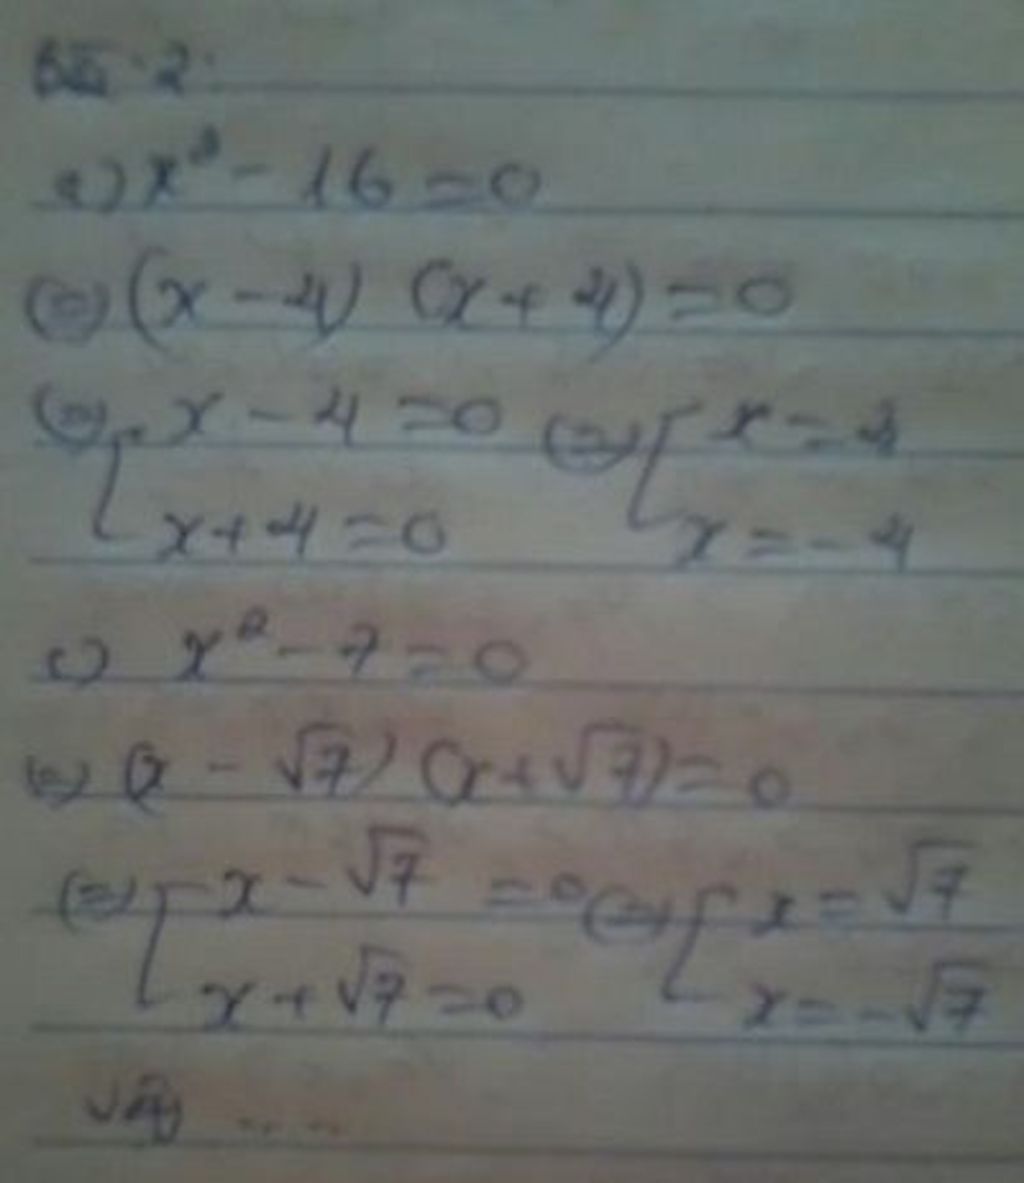 Bài 2:
a) x² - 16 = 0
⇔ (x - 4) (x + 4) = 0
⇔ [ x - 4 = 0 ⇔ [ x = 4
x + 4 = 0 x = -4
c) x² - 7 = 0
⇔ (x - √7) (x + √7) = 0
⇔ [ x - √7 = 0 ⇔ [ x = √7
x + √7 = 0 x = -√7
Vậy .....